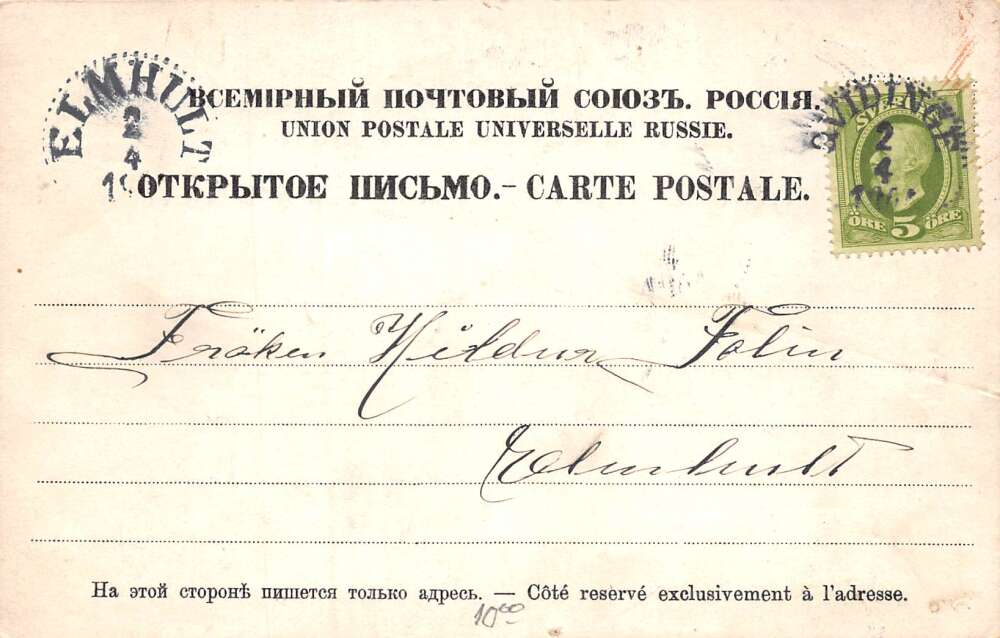 ELMHULT
2
4
ВСЕМІРНЫЙ ПОЧТОВЫЙ СОЮЗЪ. РОССІЯ.
UNION POSTALE UNIVERSELLE RUSSIE.
ОТКРЫТОЕ ПИСЬМО.- CARTE POSTALE.
SVERIGE
2
4
ÖRE 5 ÖRE
Fröken Hildur Folin
Elmhult
На этой сторонѣ пишется только адресъ. — Côté reservé exclusivement à l'adresse.
10.00